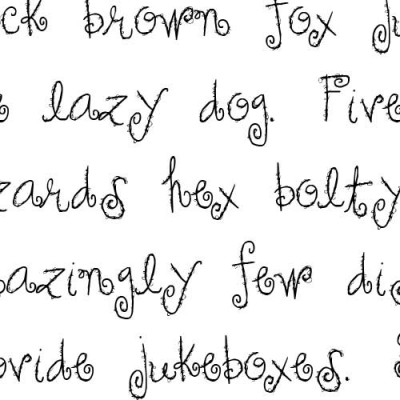 ck brown fox ju
e lazy dog. Five
zards hex bolty
azingly few dis
ovide jukeboxes.